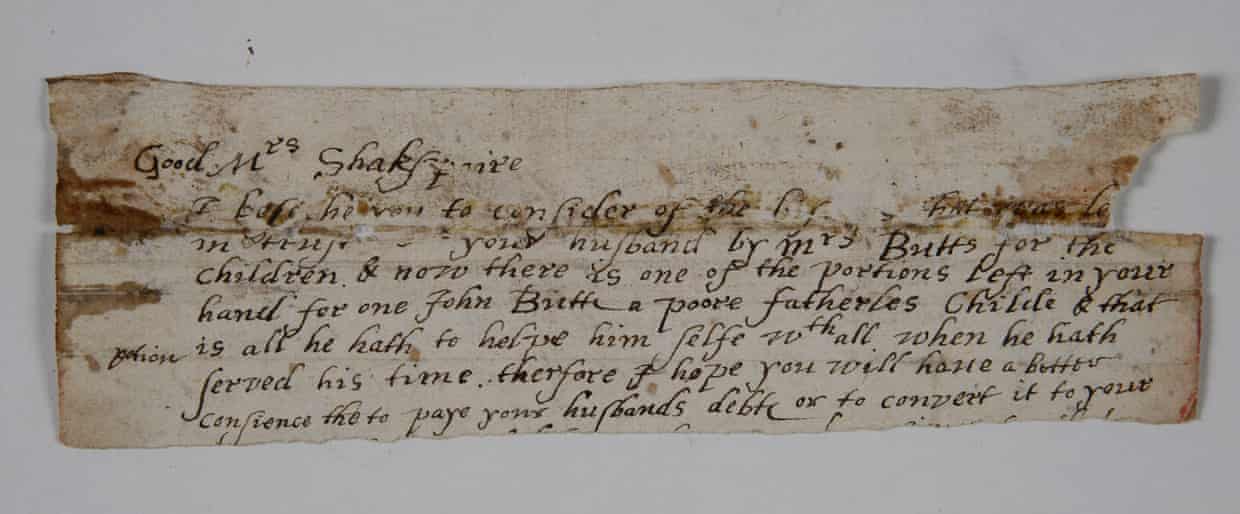 Good Mrs Shakspaire
I beseche you to consider of the that was le
in trust your husband by mrs Butts for the
Children & now there is one of the portions left in your
hand for one John Butte a poore fatherles Childe & that
is all he hath to helpe him selfe wth all when he hath
ption
served his time. therfore I hope you will have a better
Consience the to paye your husbands debte or to convert it to your